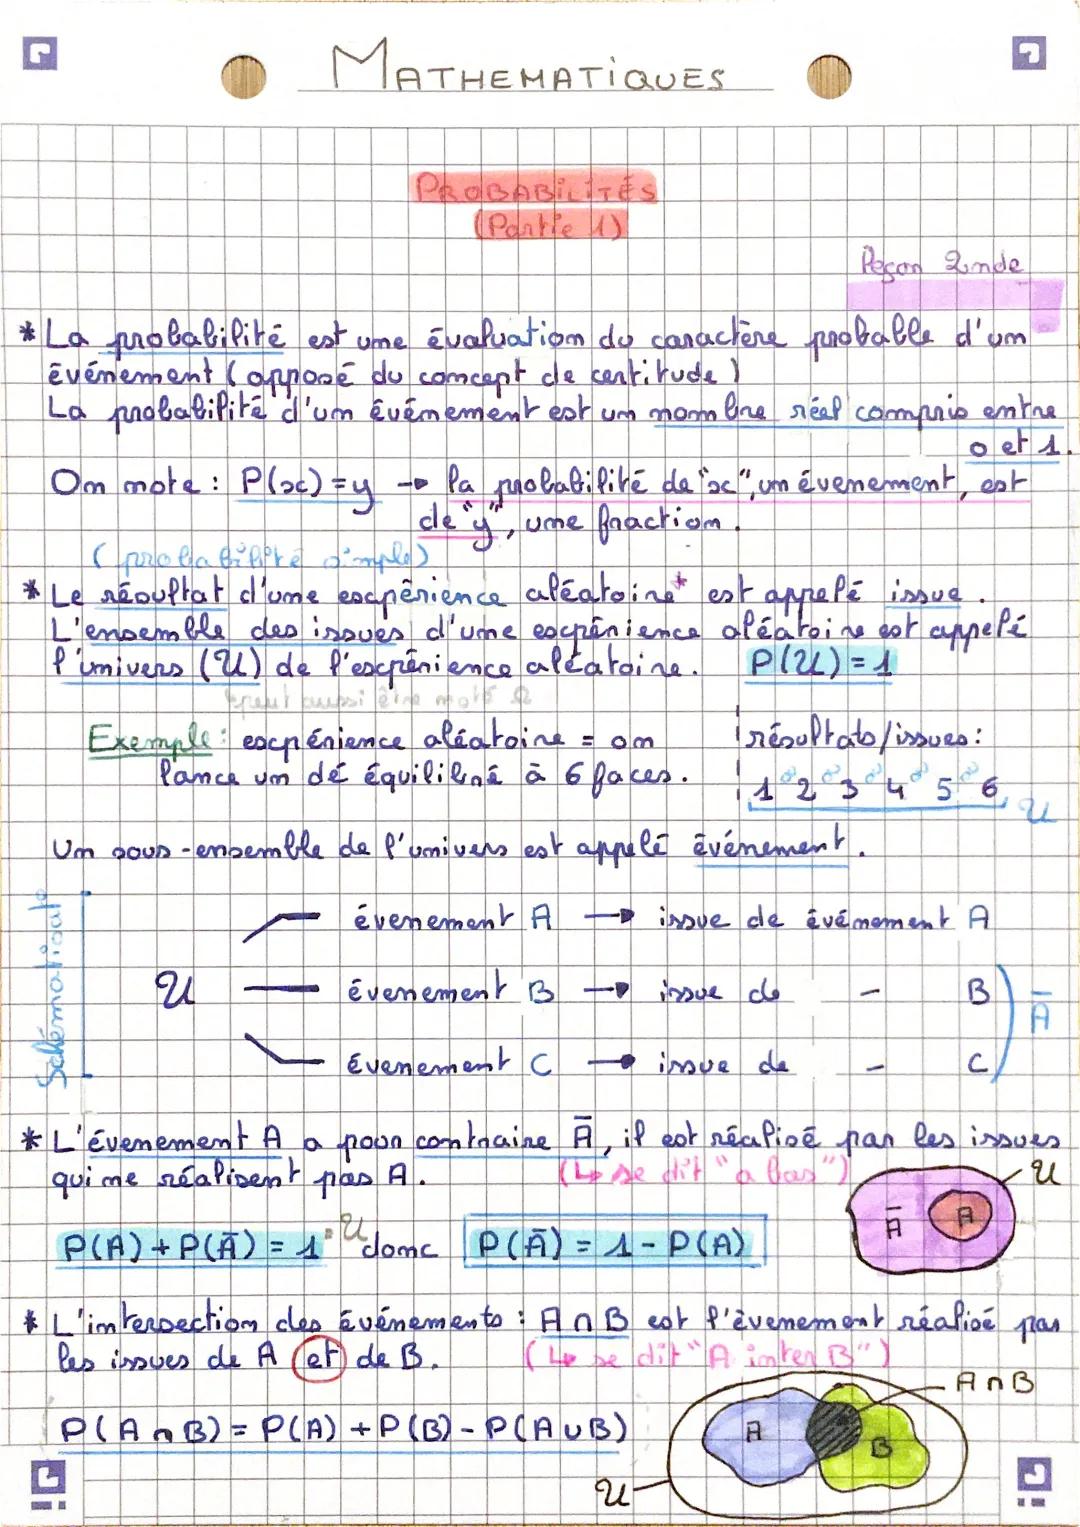 MATHEMATIQUES
PROBABILITÉS
(Partie 1)
Leçon 2nde
* La probabilité est une évaluation du caractère probable d'un
événement (opposé du concept de certitude)
La probabilité d'un événement est un nombre réel compris entre
0 et 1.
On note : P(x) = y → la probabilité de "x", un évenement, est
de "y", une fraction.
(probabilité simple)
* Le résultat d'une expérience aléatoire* est appelé issue.
L'ensemble des issues d'une expérience aléatoire est appelé
l'univers (U) de l'expérience aléatoire. P(U) = 1
peut aussi être noté Ω
Exemple : expérience aléatoire = on
lance un dé équilibré à 6 faces.
résultats/issues :
1 2 3 4 5 6
U
Un sous-ensemble de l'univers est appelé événement.
Schématisato
évenement A → issue de événement A
U évenement B → issue de - B
Ā
évenement C → issue de - C
* L'évenement A a pour contraire Ā, il est réalisé par les issues
qui ne réalisent pas A. (↳ se dit "a bas")
U
Ā A
P(A) + P(Ā) = 1 U donc P(Ā) = 1 - P(A)
* L'intersection des événements : A ∩ B est l'èvenement réalisé par
les issues de A et de B. (↳ se dit "A inter B")
A ∩ B
P(A ∩ B) = P(A) + P(B) - P(A ∪ B)
A B
U